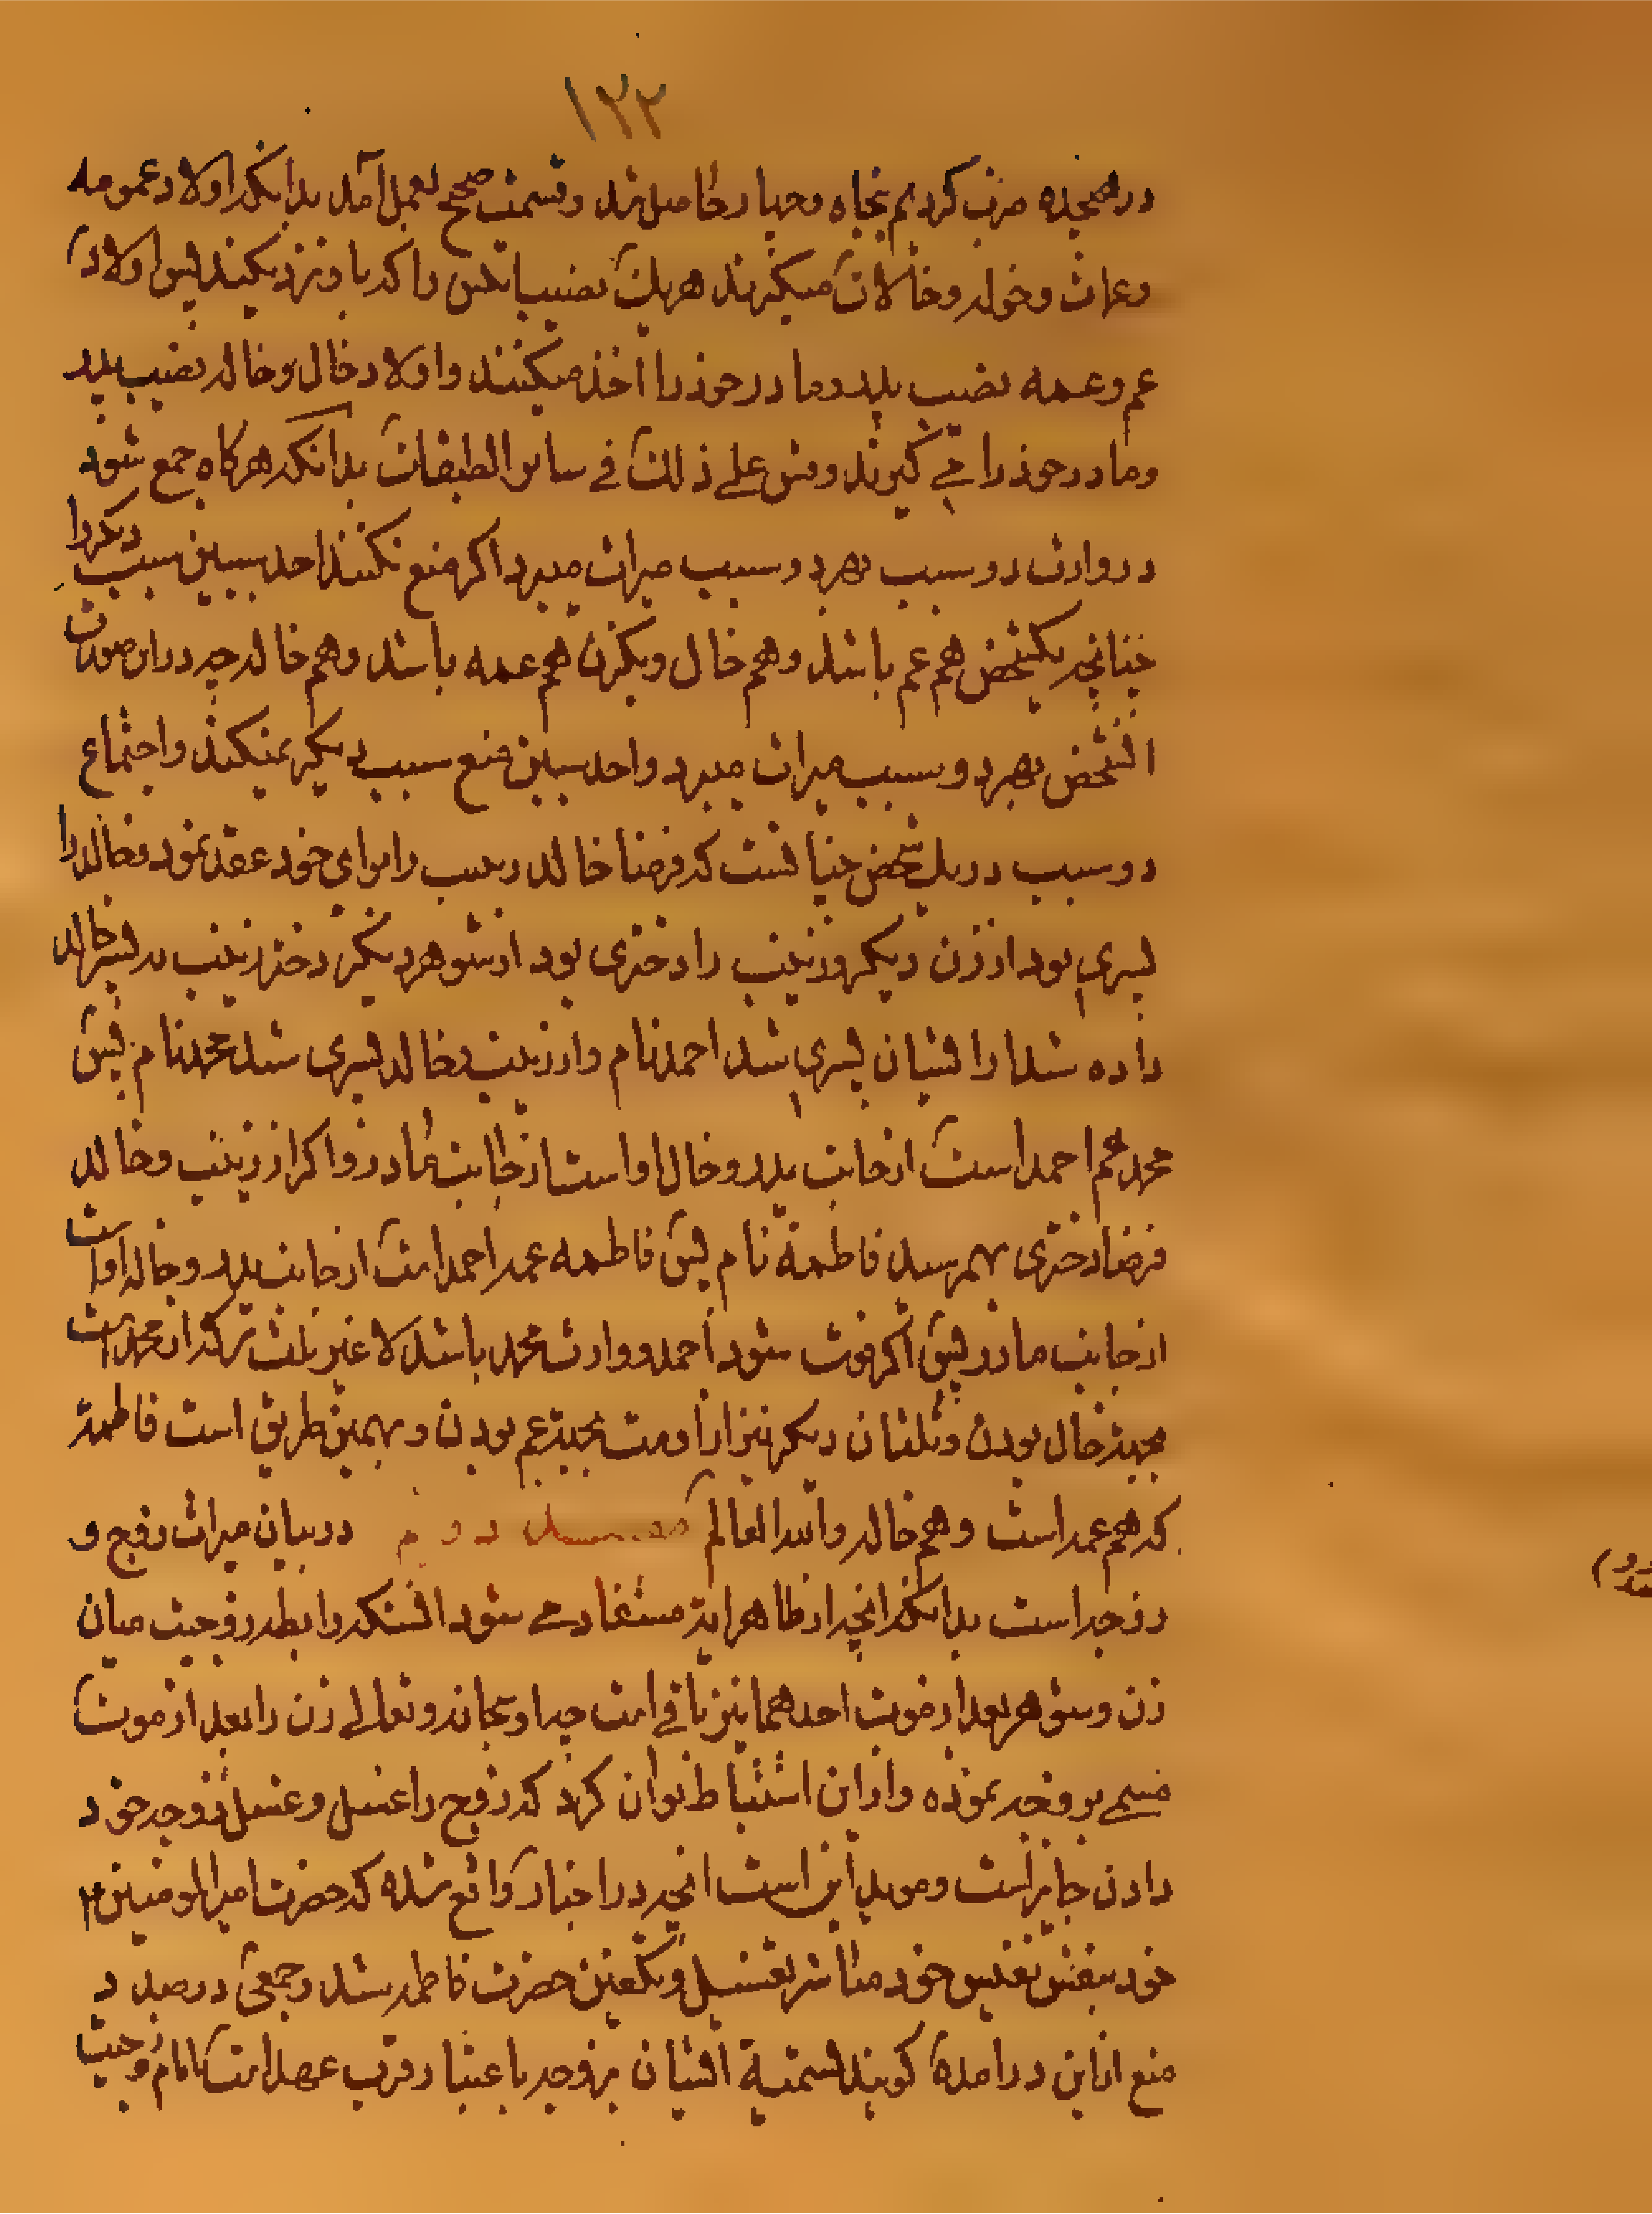 ۱۲۲
در هیجده ضرب کردیم پنجاه و چهار حاصل شد و قسمت صحیح بعمل آمد بدانکه اولاد عمومه
و عمات و خوله و خالات میگیرند هریک نصیب انکس را که باو نزدیکند پس اولاد
عم و عمه نصیب پدر و مادر خود را اخذ میکنند و اولاد خال و خاله نصیب پدر
و مادر خود را می گیرند و قس علی ذلک فی سائر الطبقات بدانکه هرکاه جمع شود
در وارث دو سبب بهر دو سبب میراث میبرد اکر منع نکند احد سببین سبب دیکر را
چنانچه یکشخص هم عم باشد و هم خال و یکزن هم عمه باشد و هم خاله چه در این صورت
انشخص بهر دو سبب میراث میبرد و احد سببین منع سبب دیکر نمیکند و اجتماع
دو سبب در یک شخص چنانست که فرضا خالد زینب را برای خود عقد نمود و خالد را
پسری بود از زن دیکر و زینب را دختری بود از شوهر دیکر دختر زینب به پسر خالد
داده شد از ایشان پسری شد احمد نام و از زینب و خالد پسری شد محمد نام پس
محمد عم احمد است از جانب پدر و خال او است از جانب مادر و اکر از زینب و خالد
فرضا دختری بهم رسید فاطمه نام پس فاطمه عمه احمد است از جانب پدر و خاله او است
از جانب مادر پس اکر فوت شود احمد و وارث محمد باشد لا غیر ثلث ترکه از محمد است
بجهة خال بودن و ثلثان دیکر نیز از اوست بجهة عم بودن و بهمین طریق است فاطمة
که هم عمه است و هم خاله والله العالم دویم در بیان میراث زوج و
زوجه است بدانکه انچه از ظاهر ایة مستفاد می شود انستکه رابطه زوجیت میان
زن و شوهر بعد از موت احدهما نیز باقی است چه او سبحانه و تعالی زن را بعد از موت
مسمی بزوجه نموده و از این استنباط توان کرد که زوج را غسل و غسل زوجه خود
دادن جایز است و موید این است انچه در اخبار واقع شده که حضرت امیر المومنین
خود بنفس نفیس خود مباشر تغسیل و تکفین حضرت فاطمه شد و جمعی در صدد
منع از این در امده کویند تسمیة ایشان بزوجه باعتبار قرب عهد است بایام زوجیت